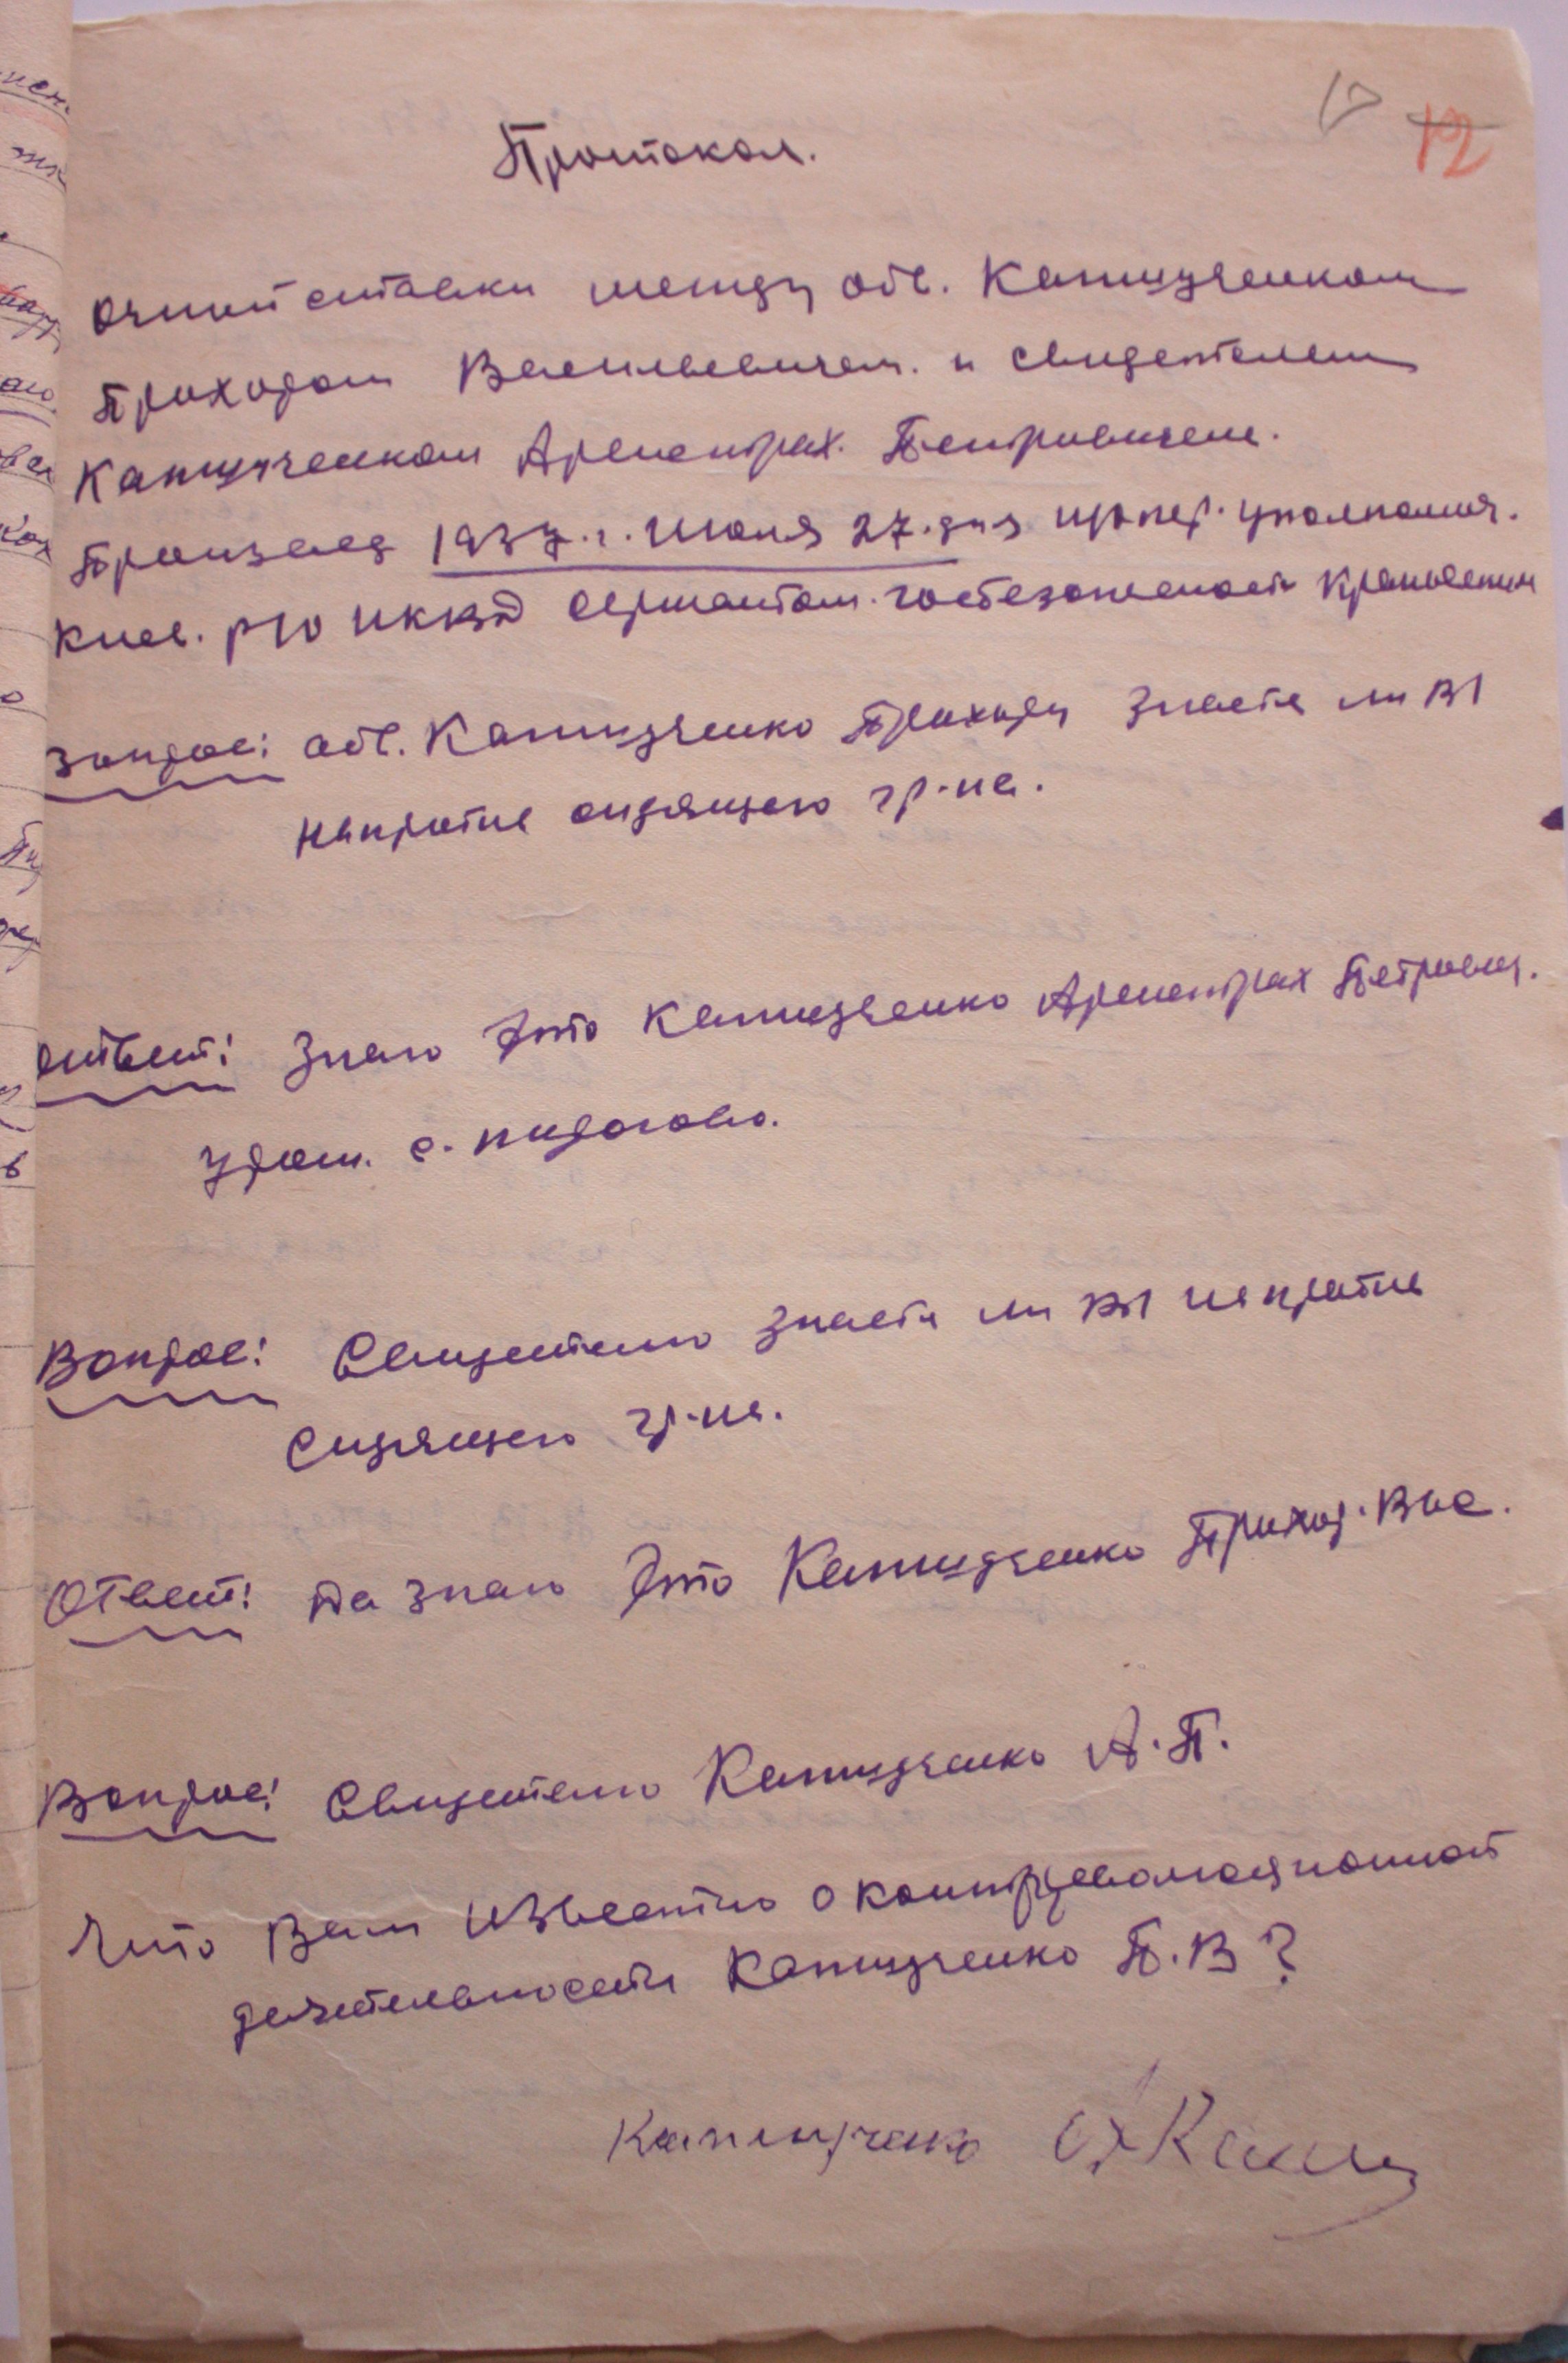 10 12
Протокол.
очной ставки между обв. Капшученком
Прохором Васильевичем. и свидетелем
Капшученком Арист. Петровичем.
Произвел 1937.г. Июля 27.дня опер. уполномоч.
Киев. РО НКВД Сержантом. госбезопасности
Вопрос: обв. Капшученко Прохору Знаете ли Вы
напротив сидящего гр-на.
ответ: Знаю Это Капшученко Петрович.
урож. с. пидогово.
Вопрос: Свидетелю Знаете ли Вы напротив
Сидящего гр-на.
Ответ: Да знаю Это Капшученко Прохор. Вас.
Вопрос: Свидетелю Капшученко А.П.
Что Вам Известно о контрреволюционной
деятельности Капшученко П.В?
Капшученко